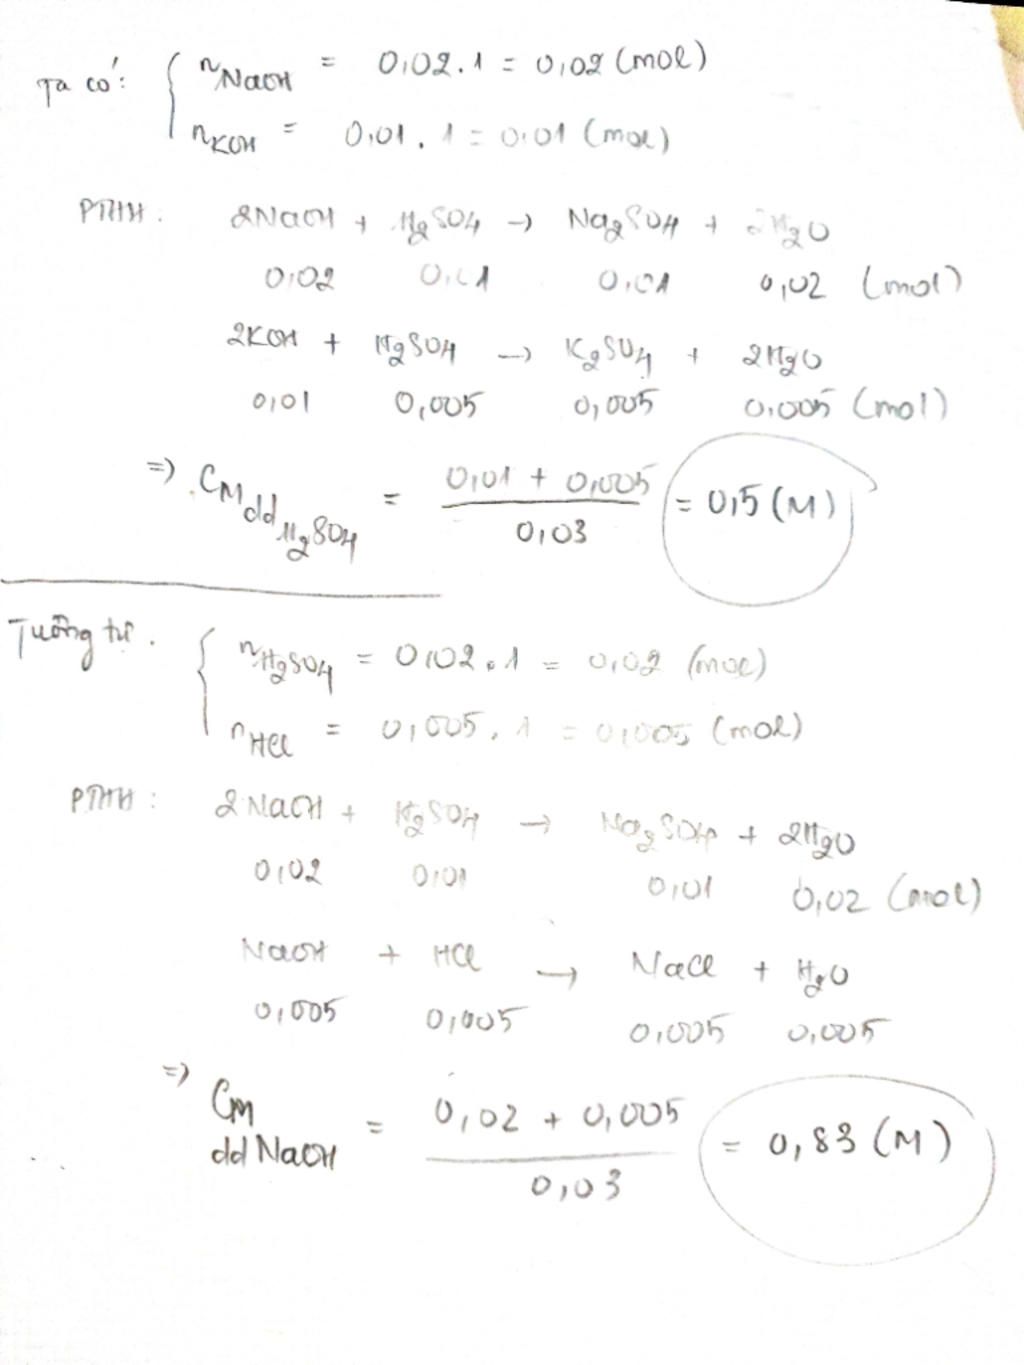 Ta có: { nNaOH = 0,02.1 = 0,02 (mol)
nKOH = 0,01.1 = 0,01 (mol)
PTHH: 2NaOH + H2SO4 → Na2SO4 + 2H2O
0,02 0,01 0,01 0,02 (mol)
2KOH + H2SO4 → K2SO4 + 2H2O
0,01 0,005 0,005 0,005 (mol)
=> CM dd H2SO4 = (0,01 + 0,005)/0,03 = 0,5 (M)
Tương tự. { nH2SO4 = 0,02.1 = 0,02 (mol)
nHCl = 0,005.1 = 0,005 (mol)
PTHH: 2NaOH + H2SO4 → Na2SO4 + 2H2O
0,02 0,01 0,01 0,02 (mol)
NaOH + HCl → NaCl + H2O
0,005 0,005 0,005 0,005
=> CM dd NaOH = (0,02 + 0,005)/0,03 = 0,83 (M)